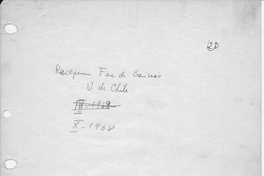 20
Recepción Fac de Ciencias
U. de Chile
III-1968
X-1968